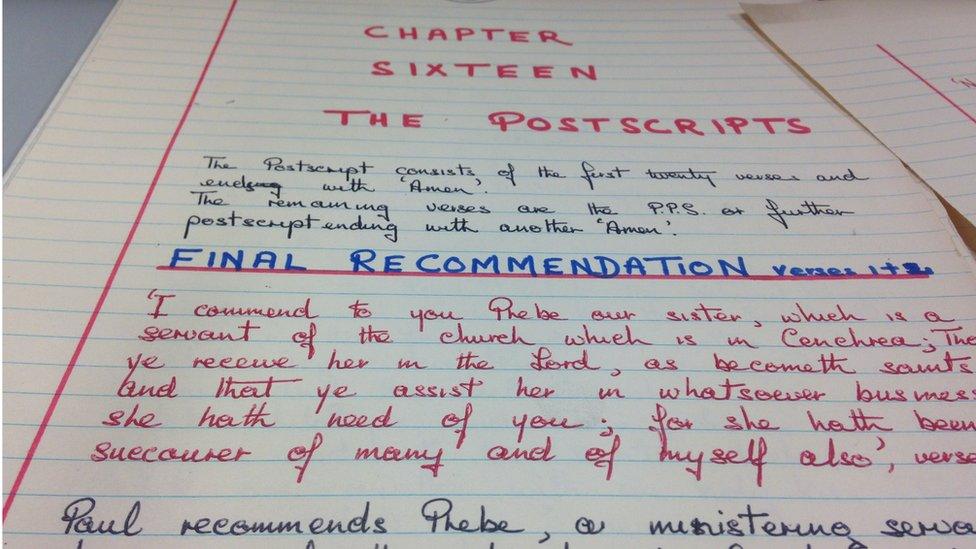 CHAPTER
SIXTEEN
THE POSTSCRIPTS
The Postscript consists of the first twenty verses and
ending with 'Amen'.
The remaining verses are the P.P.S. or further
postscript ending with another 'Amen'.
FINAL RECOMMENDATION verses 1+2
'I commend to you Phebe our sister, which is a
servant of the church which is in Cenchrea; The
ye receive her in the Lord, as becometh saints
and that ye assist her in whatsoever busines
she hath need of you; for she hath been
succourer of many and of myself also', verse
Paul recommends Phebe, a ministering serva